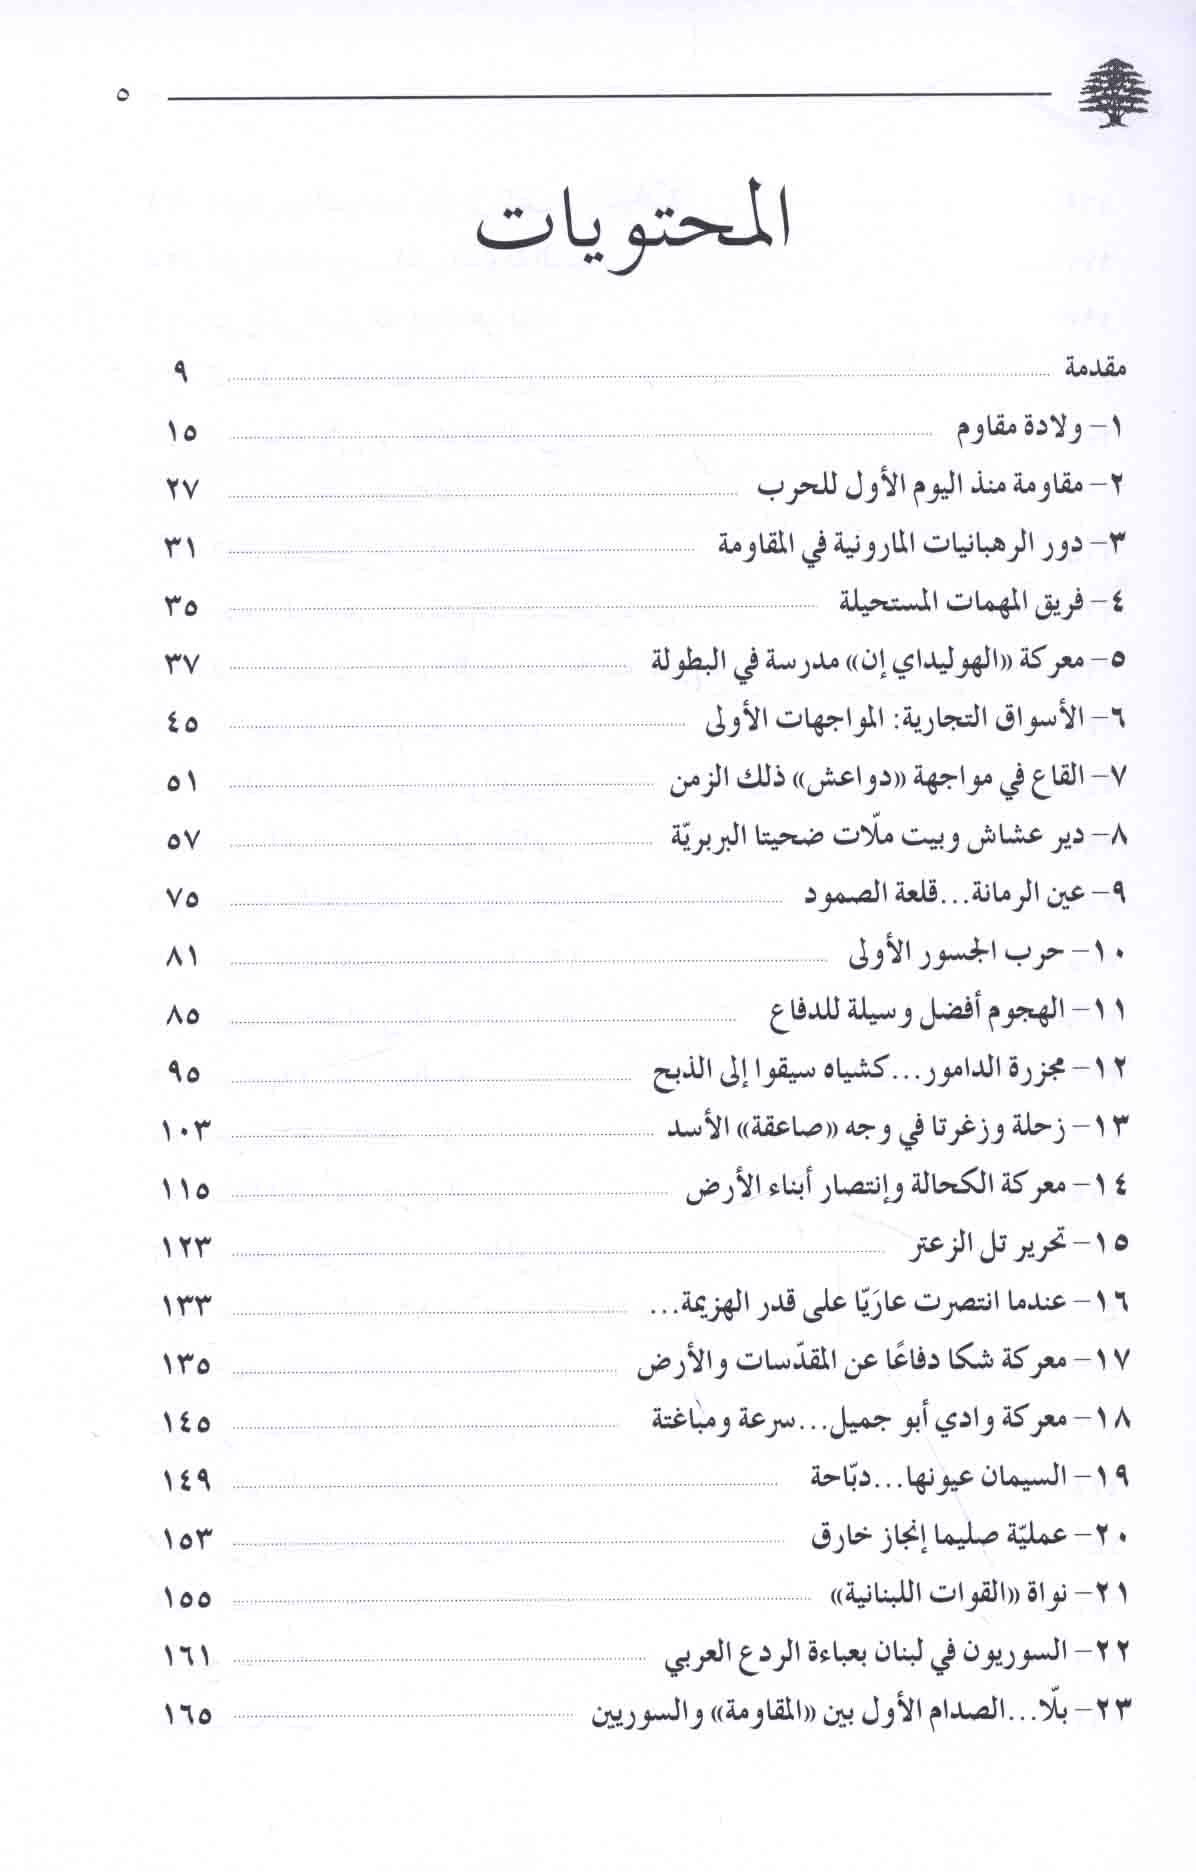 ٥
المحتويات
مقدمة ................ ٩
١- ولادة مقاوم ................ ١٥
٢- مقاومة منذ اليوم الأول للحرب ................ ٢٧
٣- دور الرهبانيات المارونية في المقاومة ................ ٣١
٤- فريق المهمات المستحيلة ................ ٣٥
٥- معركة «الهوليداي إن» مدرسة في البطولة ................ ٣٧
٦- الأسواق التجارية: المواجهات الأولى ................ ٤٥
٧- القاع في مواجهة «دواعش» ذلك الزمن ................ ٥١
٨- دير عشاش وبيت ملّات ضحيتا البربريّة ................ ٥٧
٩- عين الرمانة...قلعة الصمود ................ ٧٥
١٠- حرب الجسور الأولى ................ ٨١
١١- الهجوم أفضل وسيلة للدفاع ................ ٨٥
١٢- مجزرة الدامور...كشياه سيقوا إلى الذبح ................ ٩٥
١٣- زحلة وزغرتا في وجه «صاعقة» الأسد ................ ١٠٣
١٤- معركة الكحالة وإنتصار أبناء الأرض ................ ١١٥
١٥- تحرير تل الزعتر ................ ١٢٣
١٦- عندما انتصرت عارَيّا على قدر الهزيمة... ................ ١٣٣
١٧- معركة شكا دفاعًا عن المقدّسات والأرض ................ ١٣٥
١٨- معركة وادي أبو جميل...سرعة ومباغتة ................ ١٤٥
١٩- السيمان عيونها...دبّاحة ................ ١٤٩
٢٠- عمليّة صليما إنجاز خارق ................ ١٥٣
٢١- نواة «القوات اللبنانية» ................ ١٥٥
٢٢- السوريون في لبنان بعباءة الردع العربي ................ ١٦١
٢٣- بلّا...الصدام الأول بين «المقاومة» والسوريين ................ ١٦٥